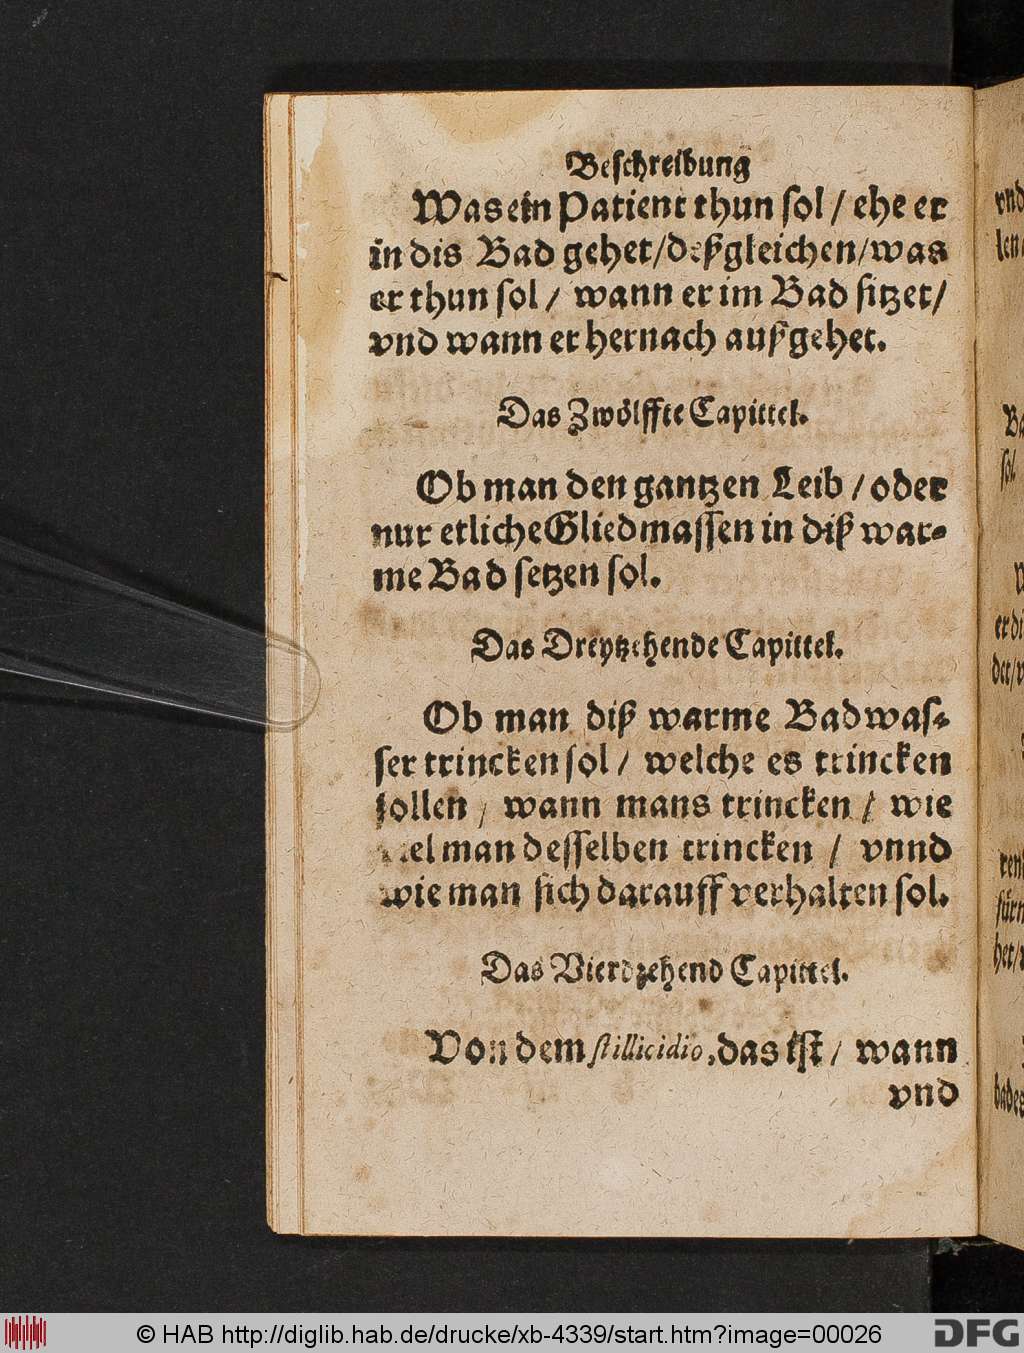 Beschreibung
Was ein Patient thun sol / ehe er
in dis Bad gehet / deßgleichen / was
er thun sol / wann er im Bad sitzet /
vnd wann er hernach außgehet.
Das Zwölffte Capittel.
Ob man den gantzen Leib / oder
nur etliche Gliedmassen in diß war⸗
me Bad setzen sol.
Das Dreytzehende Capittel.
Ob man diß warme Badwas⸗
ser trincken sol / welche es trincken
sollen / wann mans trincken / wie
viel man desselben trincken / vnnd
wie man sich darauff verhalten sol.
Das Vierdzehend Capittel.
Von dem stillicidio, das ist / wann
vnd
vnd
len
Ba
sol
er di
der / v
ren
fürn
het /
bades
© HAB http://diglib.hab.de/drucke/xb-4339/start.htm?image=00026
DFG